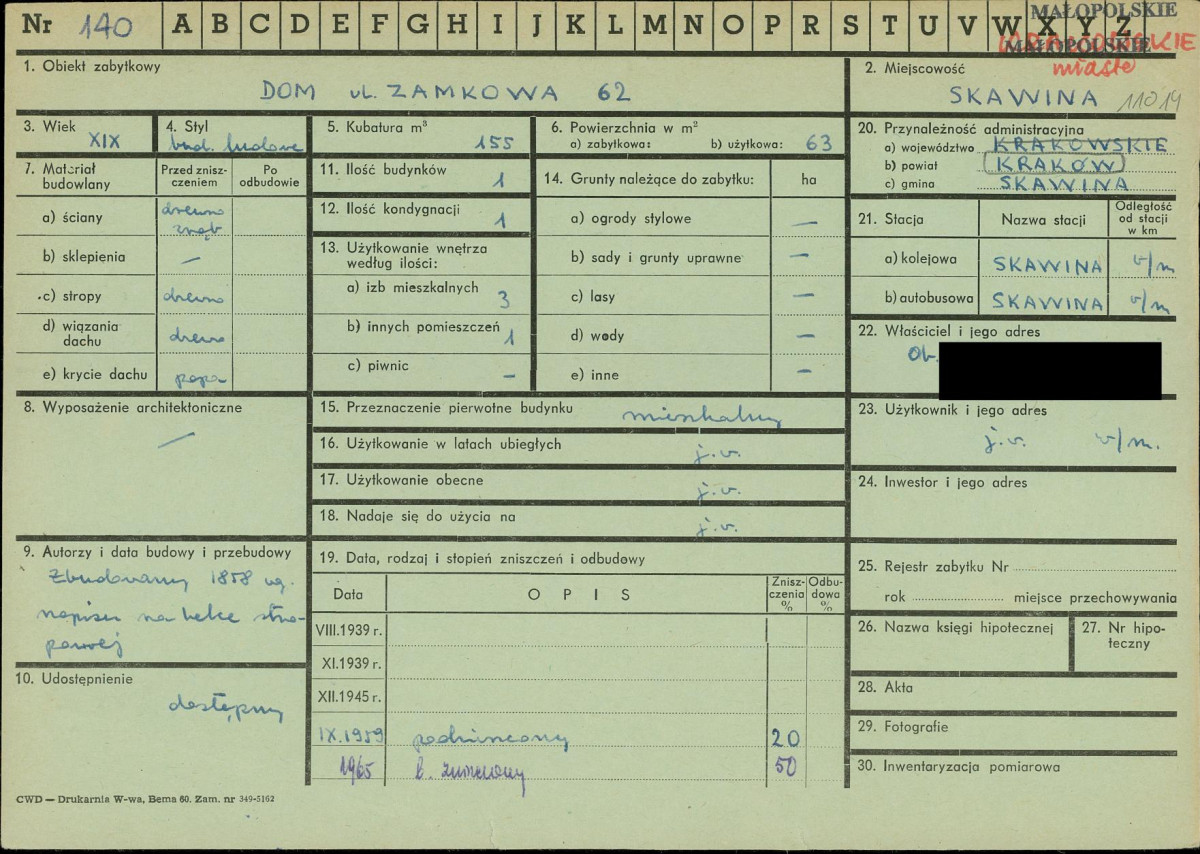 Nr 140 A B C D E F G H I J K L M N O P R S T U V W X Y Z
MAŁOPOLSKIE
MAŁOPOLSKIE
miasto
1. Obiekt zabytkowy
DOM ul. ZAMKOWA 62
2. Miejscowość
SKAWINA 11014
3. Wiek
XIX
4. Styl
bud. ludowe
5. Kubatura m³
155
6. Powierzchnia w m²
a) zabytkowa: b) użytkowa: 63
20. Przynależność administracyjna
a) województwo KRAKOWSKIE
b) powiat KRAKÓW
c) gmina SKAWINA
7. Materiał budowlany
Przed znisz-
czeniem
Po
odbudowie
a) ściany drewno
zrąb
b) sklepienia —
c) stropy drewno
d) wiązania
dachu drewno
e) krycie dachu papa
11. Ilość budynków
1
12. Ilość kondygnacji
1
13. Użytkowanie wnętrza
według ilości:
a) izb mieszkalnych 3
b) innych pomieszczeń 1
c) piwnic —
14. Grunty należące do zabytku: ha
a) ogrody stylowe —
b) sady i grunty uprawne —
c) lasy —
d) wody —
e) inne —
21. Stacja Nazwa stacji Odległość
od stacji
w km
a) kolejowa SKAWINA v/m
b) autobusowa SKAWINA v/m
22. Właściciel i jego adres
Ob.
8. Wyposażenie architektoniczne
—
15. Przeznaczenie pierwotne budynku mieszkalny
16. Użytkowanie w latach ubiegłych j.v.
17. Użytkowanie obecne j.v.
18. Nadaje się do użycia na j.v.
23. Użytkownik i jego adres
j.v. v/m.
24. Inwestor i jego adres
9. Autorzy i data budowy i przebudowy
Zbudowany 1858 wg.
napisu na belce stro-
powej
10. Udostępnienie
dostępny
19. Data, rodzaj i stopień zniszczeń i odbudowy
Data OPIS Znisz-
czenia
% Odbu-
dowa
%
VIII.1939 r.
XI.1939 r.
XII.1945 r.
IX.1959 podniszczony 20
1965 50
25. Rejestr zabytku Nr
rok miejsce przechowywania
26. Nazwa księgi hipotecznej
27. Nr hipo-
teczny
28. Akta
29. Fotografie
30. Inwentaryzacja pomiarowa
CWD — Drukarnia W-wa, Bema 60. Zam. nr 349-5162